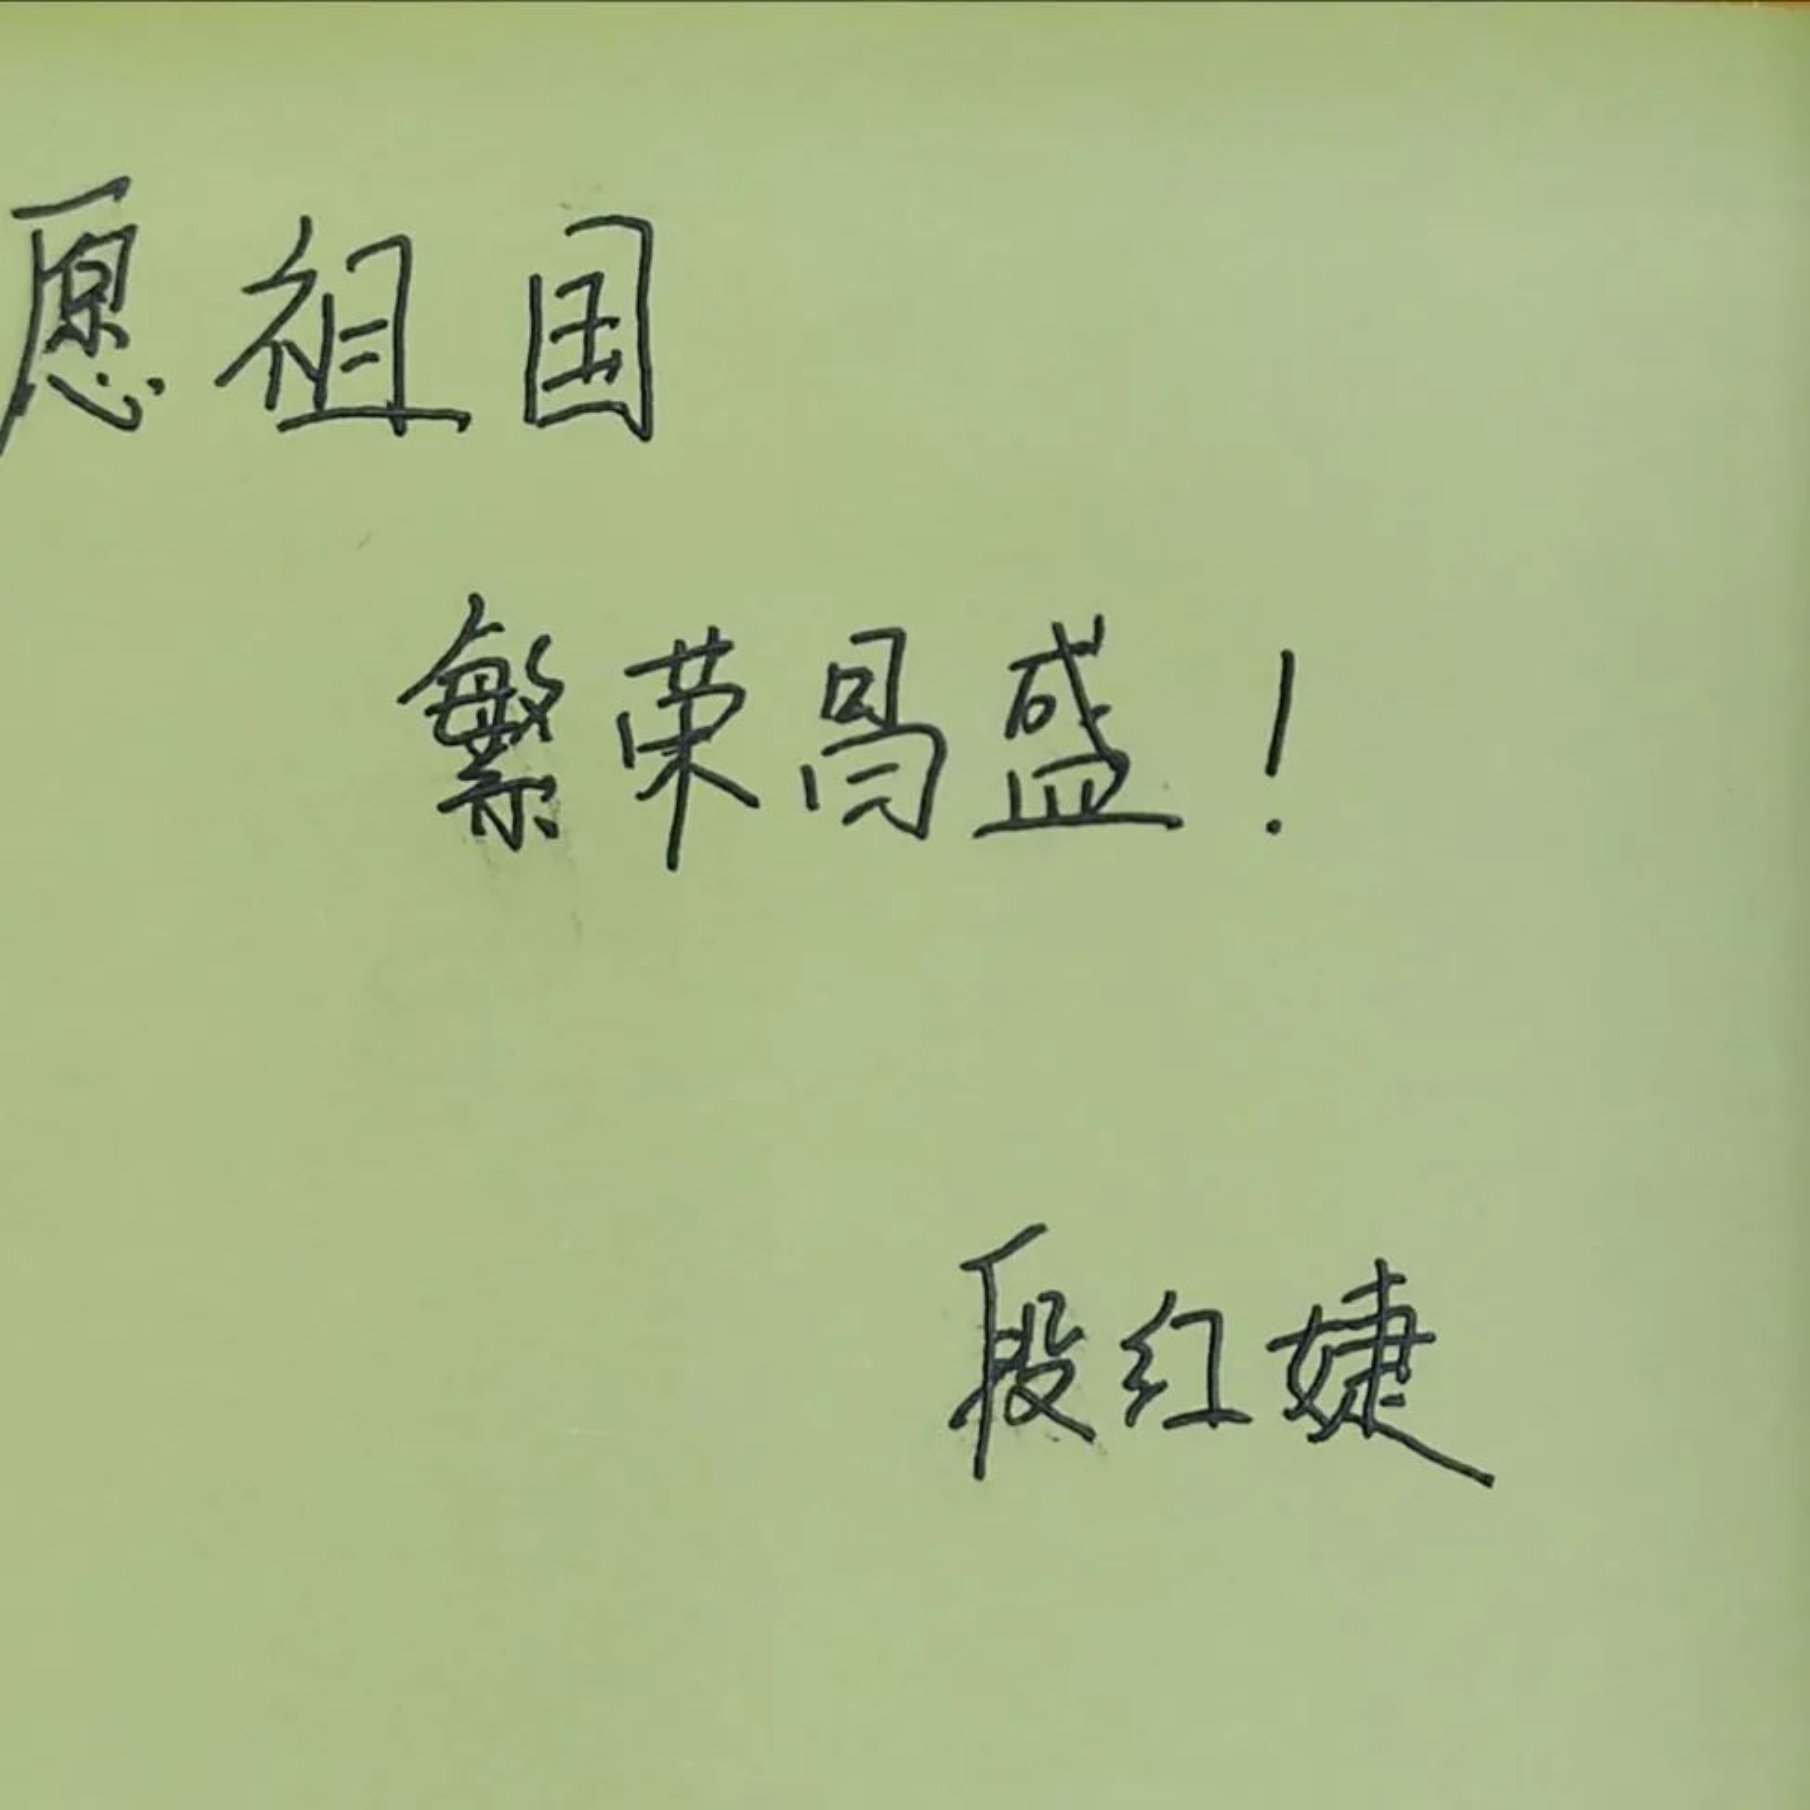 愿祖国
繁荣昌盛！
段红婕